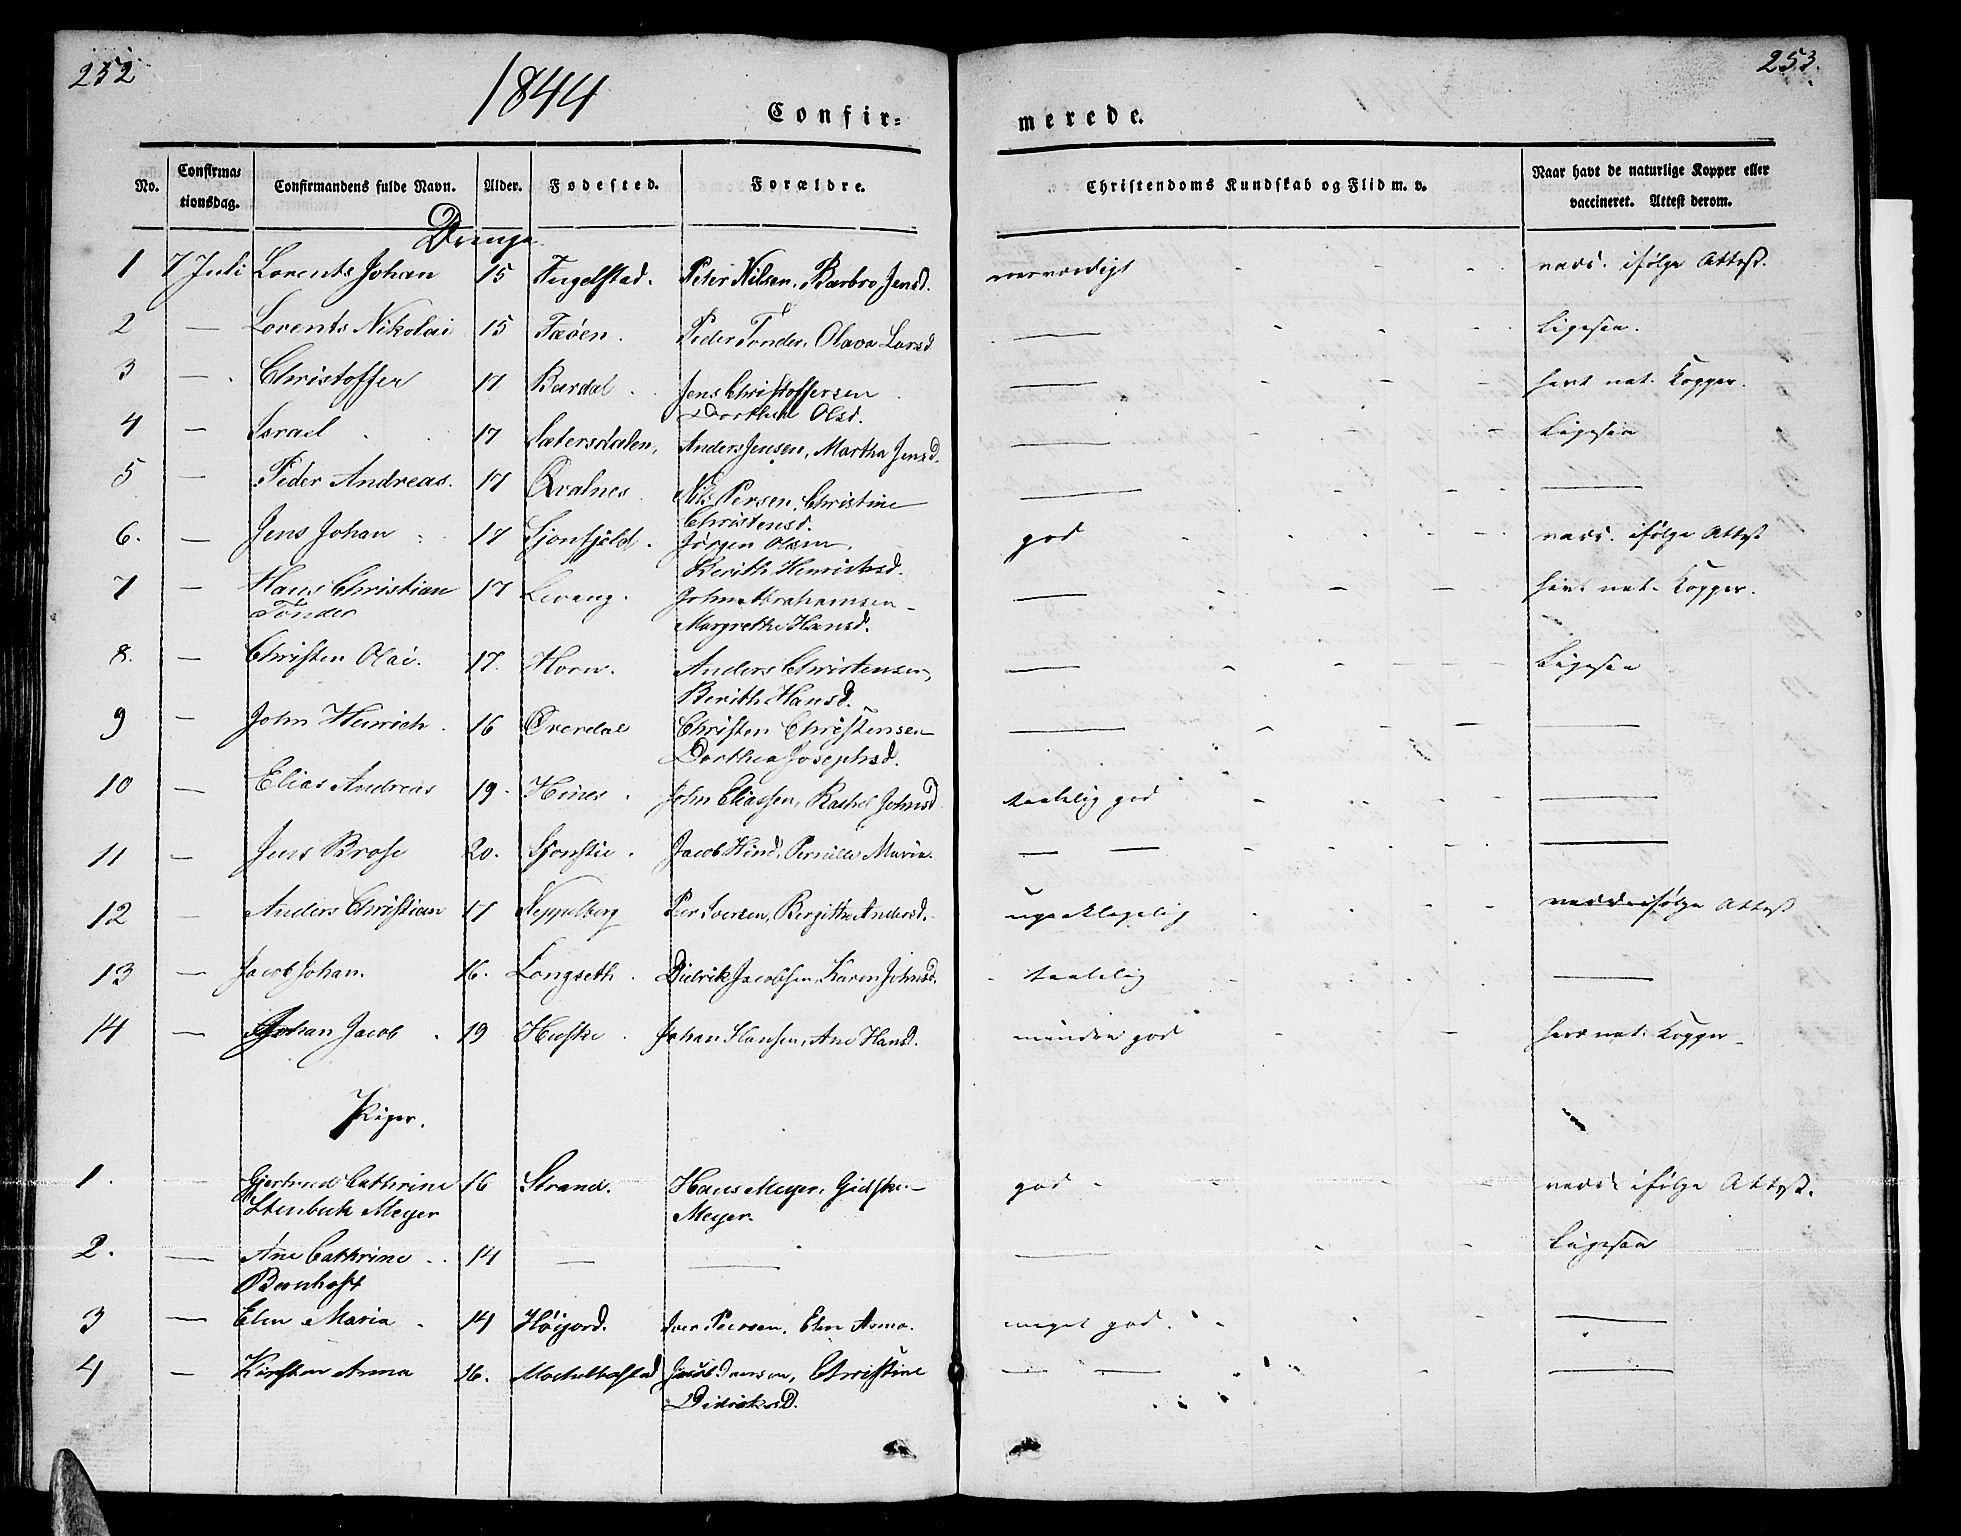 252
1844
253.
Confir=
merede.
No.
Confirma=
tionsdag.
Confirmandens fulde Navn.
Alder.
Fødested.
Forældre.
Christendoms Kundskab og Flid m. v.
Naar havt de naturlige Kopper eller
vaccineret. Attest derom.
Drenge
1 7 Juli Lorents Johan 15 Fugelstad. Peter Nilsen, Barbro Jensd. vacc. ifølge Attest.
2 — Lorents Nikolai 15 Fæöen. Peder Tönder, Olava Larsd — Ligesaa.
3 — Christoffer 17 Bardal Jens Christoffersen — havt nat. Kopper.
Dorthea Olsd.
4 — Israel 17 Sætersdalen, Anders Jensen, Martha Jensd. — Ligesaa
5 — Peder Andreas. 17 Qvalnes Nils Persen, Christine — —
Christensd.
6. — Jens Johan 17 Sjonfjeld. Jørgen Olsen, god vacc. ifølge Attest
Berith Henriksd.
7 — Hans Christian 17 Levang. John Abrahamsen — havt nat. Kopper.
Tönder
Margrethe Hansd.
8. — Christen Olai. 17. Horn. Anders Christensen, — Ligesaa
Berith Hansd.
9 — John Heinrich 16 Øverdal Christen Christensen — —
Dorthea Josephsd.
10 — Elias Andreas 19. Hines John Eliassen, Rachel Johnsd taalelig god —
11 — Jens Brose 20. Sjonstie. Jacob Hind, Pernille Maria. — — —
12 — Anders Christian 17 Neppelberg Per Iversen, Bergitte Andersd. upaaklagelig vacc. ifølge Attest
13 — Jacob Johan. 16. Longseth. Didrik Jacobsen, Karen Johnsd. taalelig —
14 — Johan Jacob 19 Husbye Johan Hansen, Ane Hansd. mindre god havt nat. Kopper
Piger.
1. — Gjertrud Cathrine 16 Strand. Hans Meyer, Gidske god vacc. ifølge Attest.
Stenbuk Meyer
Meyer.
2. — Ane Cathrine 14 — — — Ligesaa
Bernhoft
3 — Elen Maria 14 Höigord. Iver Peersen, Elen Anna. meget god. —
4 — Kirsten Anna 16. Jacob Iversen, Christine — — —
Didriksd.